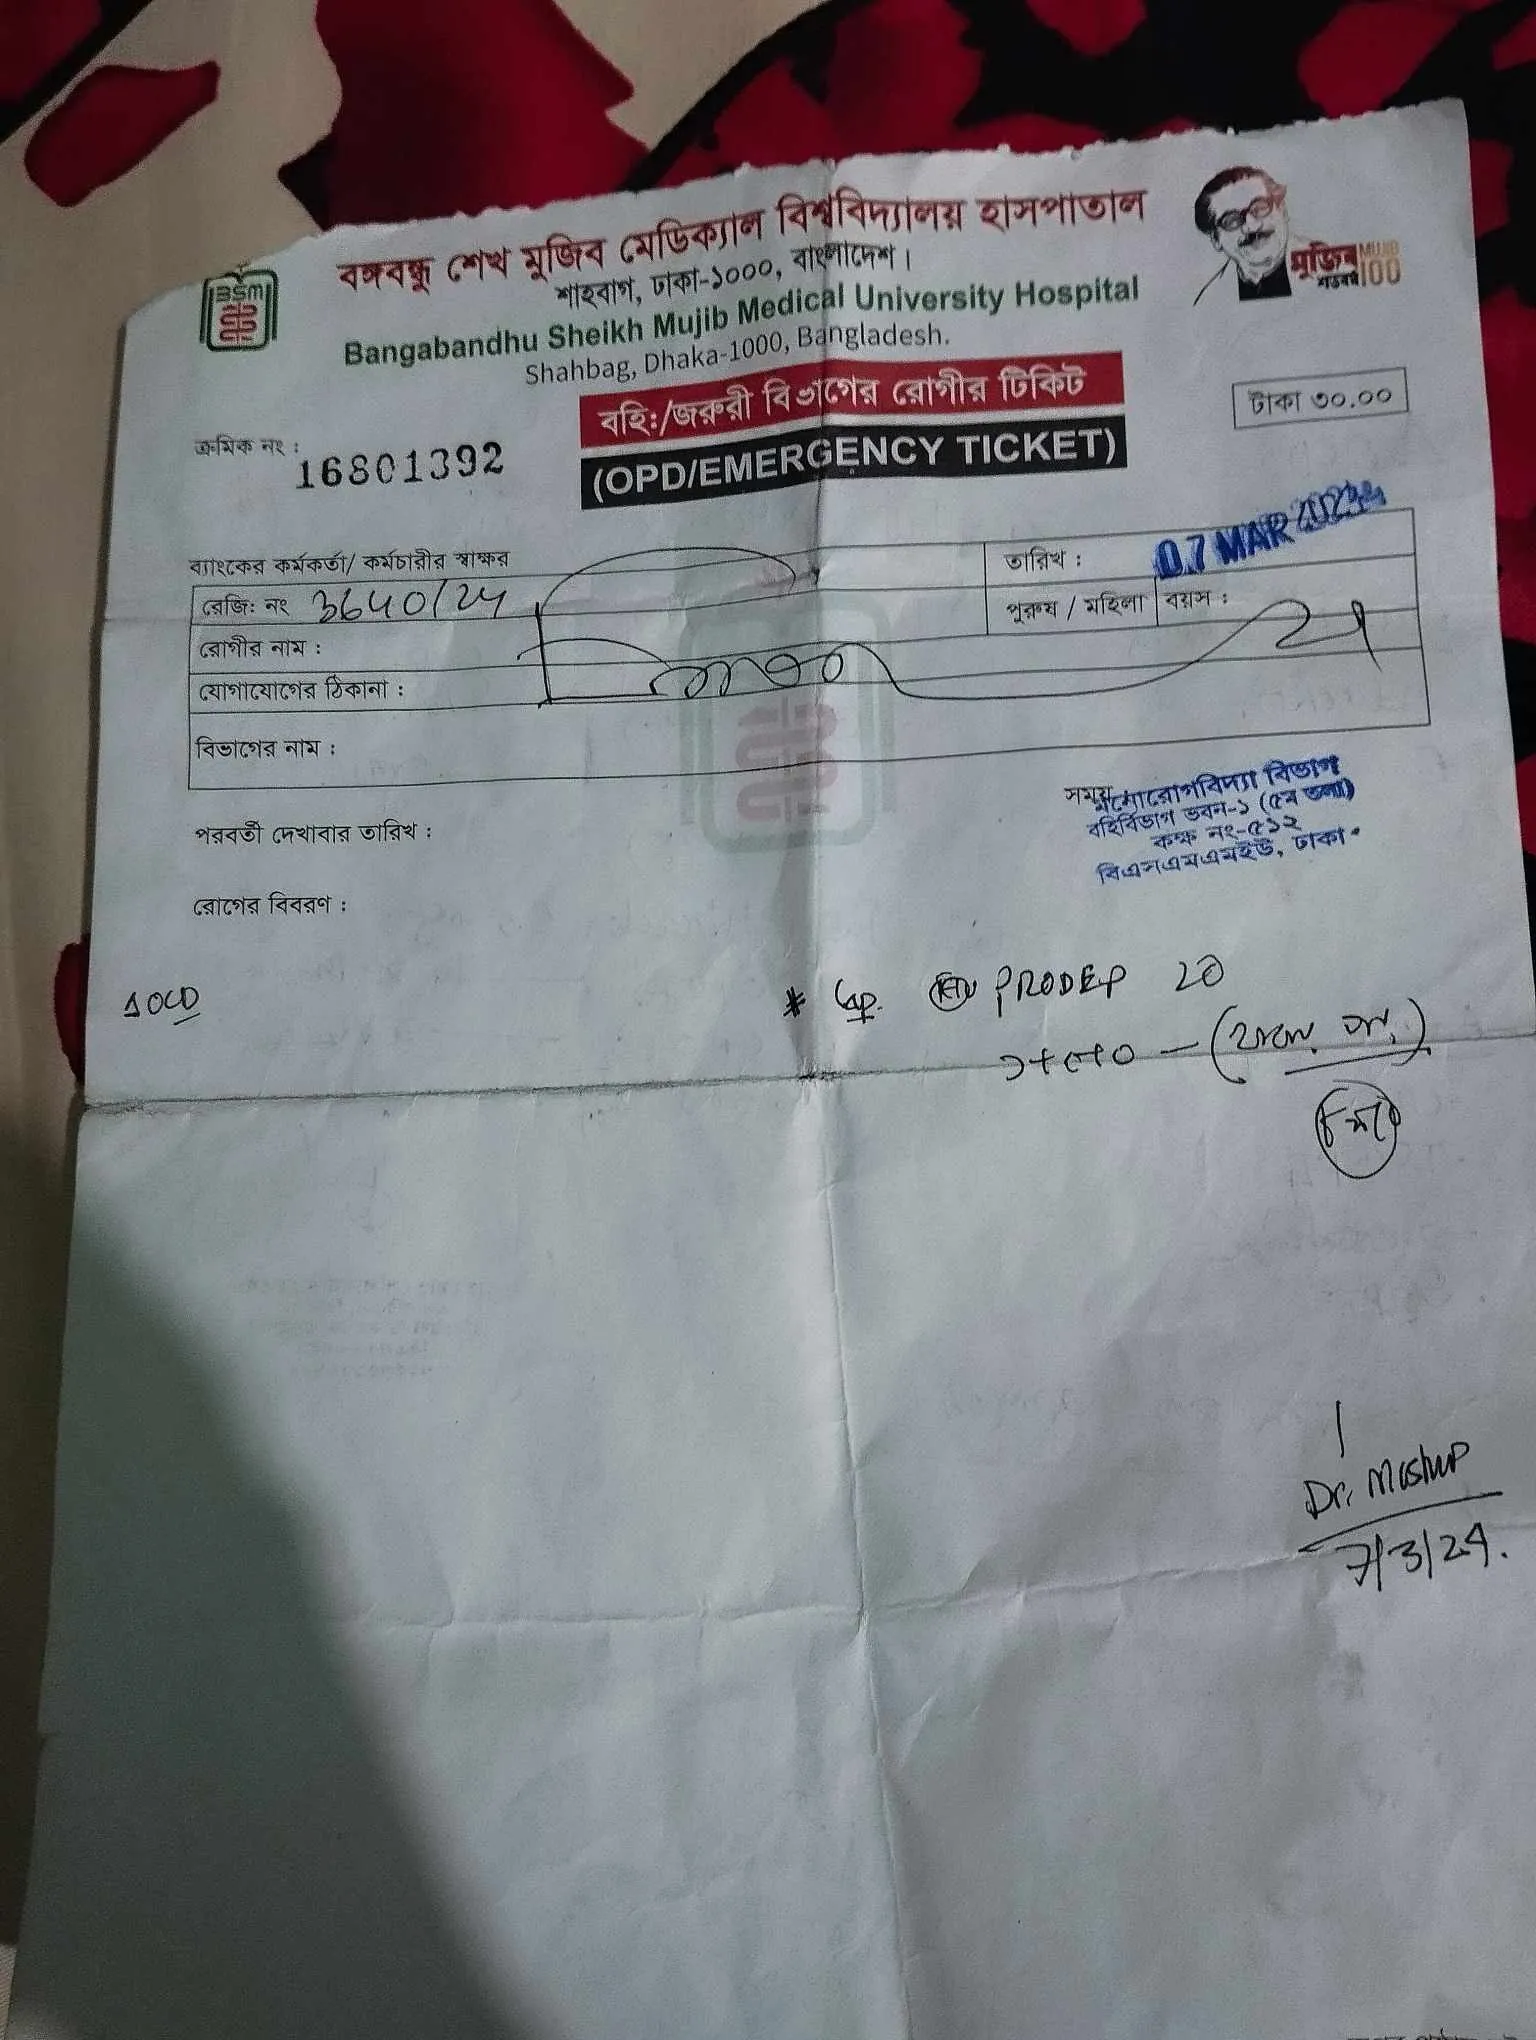 বঙ্গবন্ধু শেখ মুজিব মেডিক্যাল বিশ্ববিদ্যালয় হাসপাতাল
শাহবাগ, ঢাকা-১০০০, বাংলাদেশ।
Bangabandhu Sheikh Mujib Medical University Hospital
Shahbag, Dhaka-1000, Bangladesh.
BSM
মুজিব MUJIB
শতবর্ষ 100
বহিঃ/জরুরী বিভাগের রোগীর টিকিট
(OPD/EMERGENCY TICKET)
টাকা ৩০.০০
ক্রমিক নং : 16801392
ব্যাংকের কর্মকর্তা/ কর্মচারীর স্বাক্ষর
তারিখ : 07 MAR 2024
রেজি: নং 3640/24
পুরুষ / মহিলা বয়স :
রোগীর নাম :
যোগাযোগের ঠিকানা :
বিভাগের নাম :
সময়
মনোরোগবিদ্যা বিভাগ
বহির্বিভাগ ভবন-১ (৫ম তলা)
কক্ষ নং-৫১২
বিএসএমএমইউ, ঢাকা
পরবর্তী দেখাবার তারিখ :
রোগের বিবরণ :
OCD
* Cap. PRODEP 20
১+০+০ —
Dr.
7/3/24.